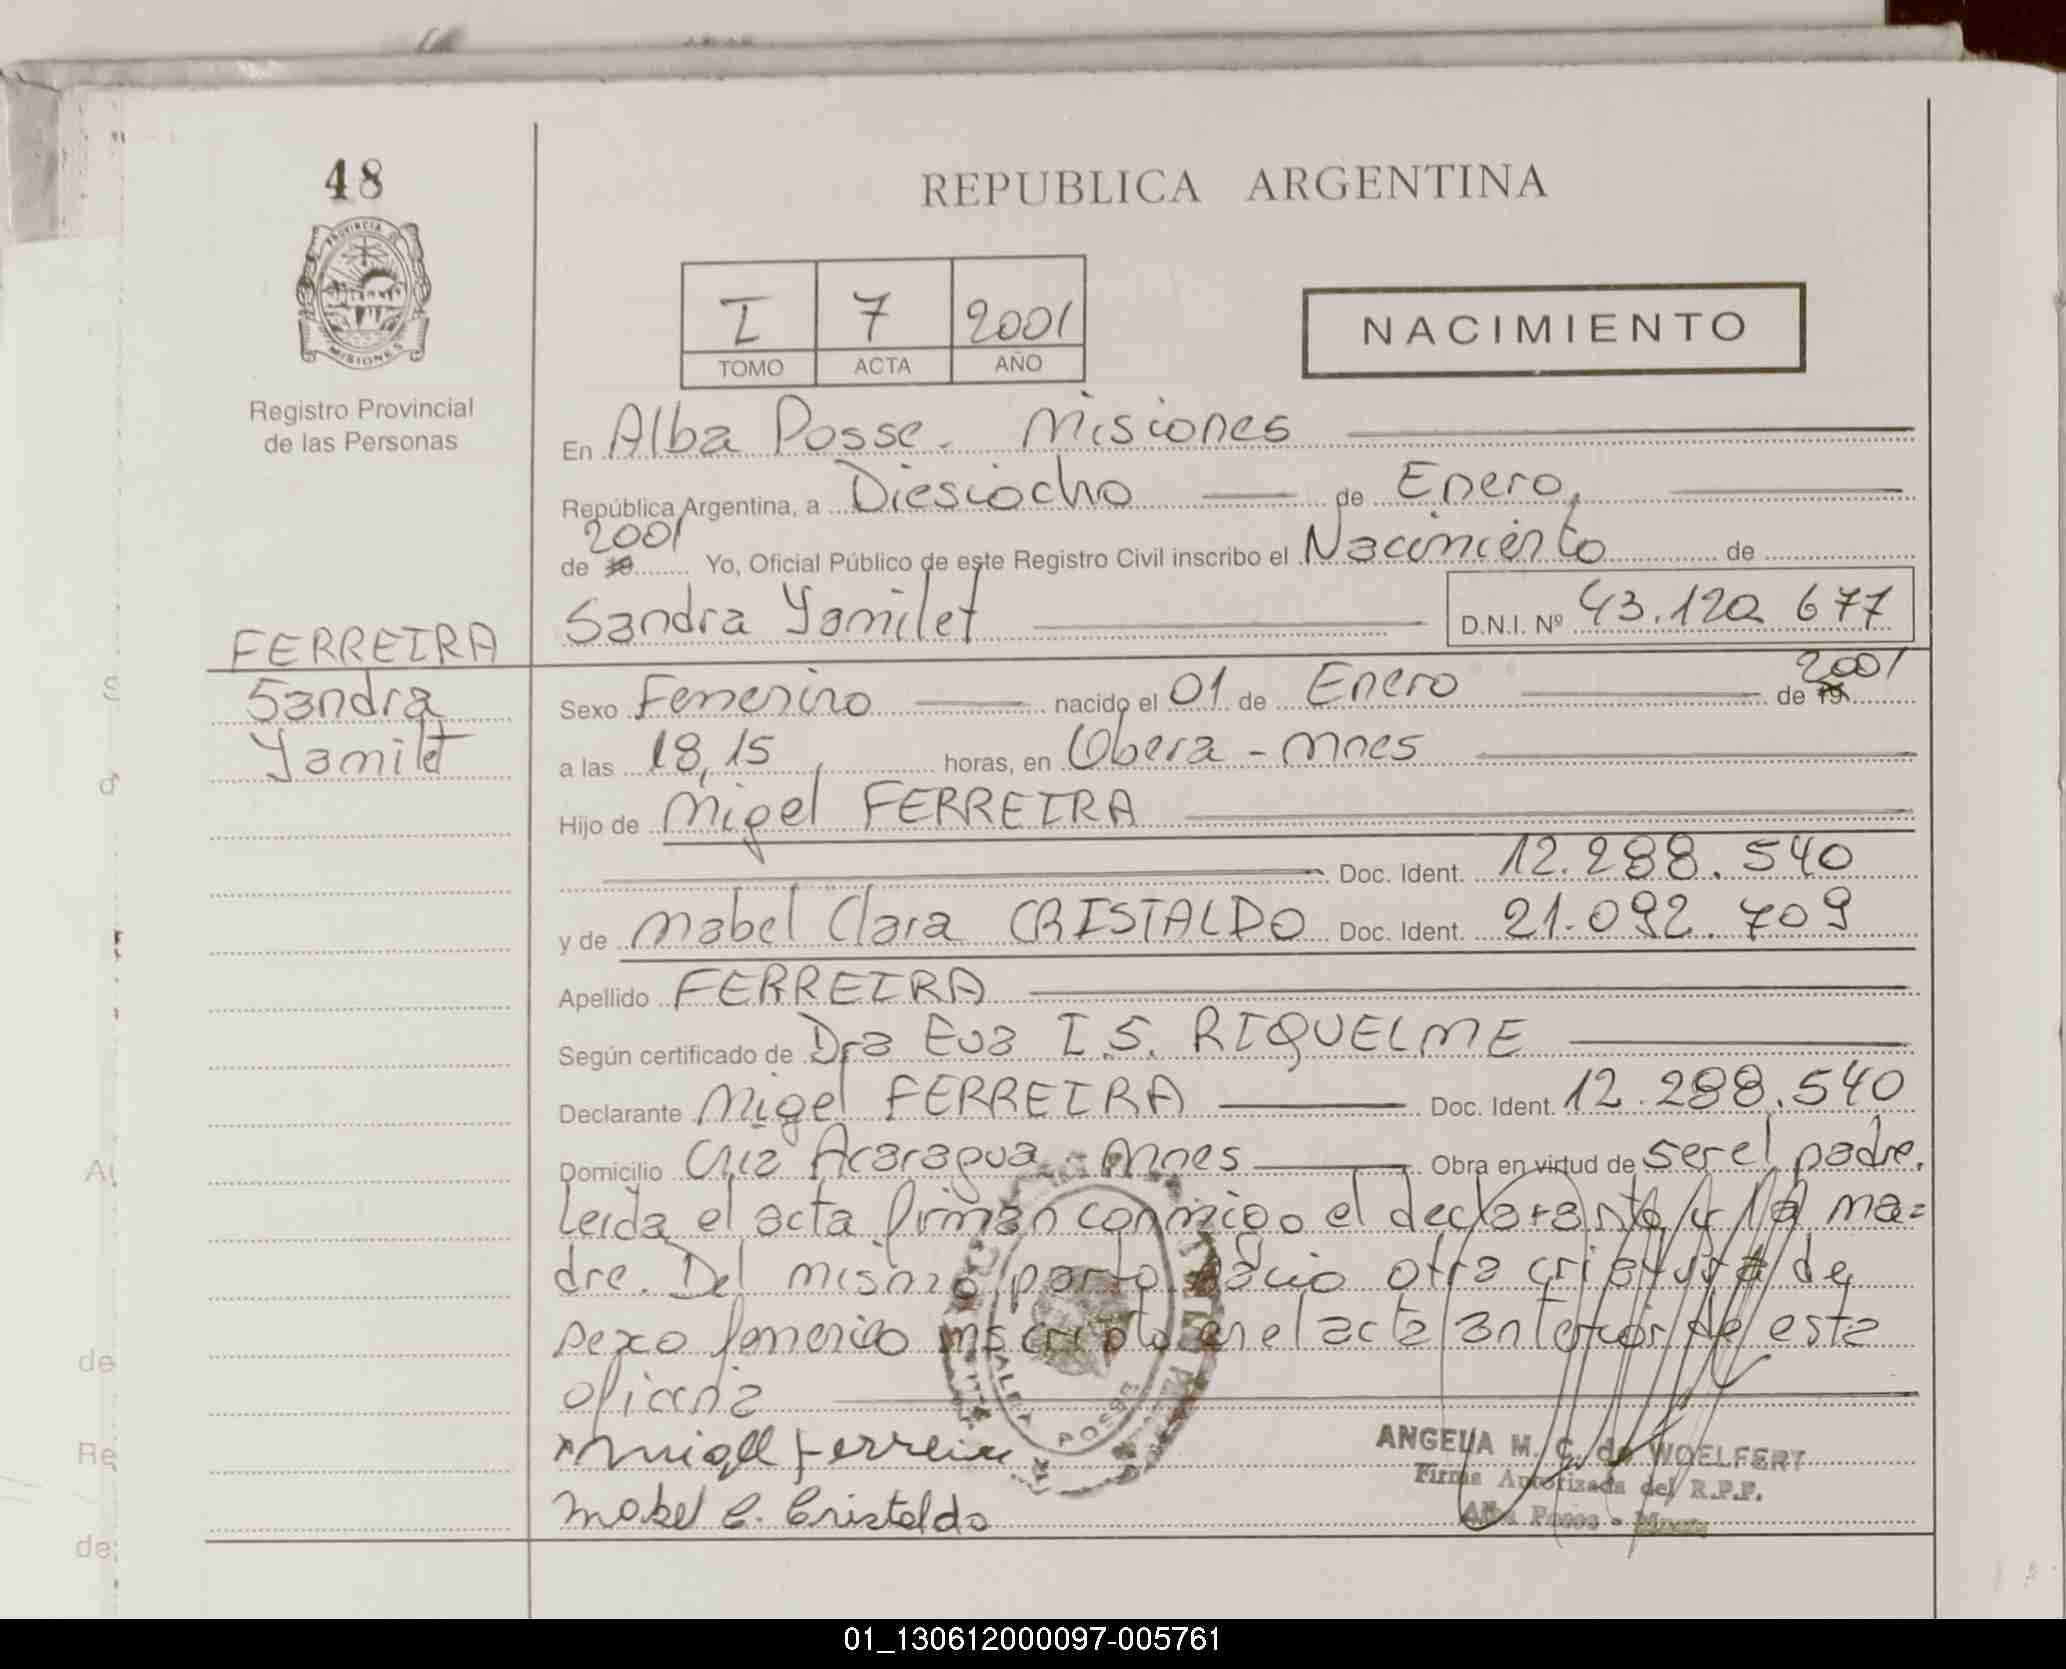 48
REPUBLICA ARGENTINA
PROVINCIA DE
MISIONES
I 7 2001
TOMO ACTA AÑO
NACIMIENTO
Registro Provincial
de las Personas
En Alba Posse. Misiones
República Argentina, a Diesiocho de Enero,
2001
de 19 Yo, Oficial Público de este Registro Civil inscribo el Nacimiento de
Sandra Yamilet D.N.I. Nº 43.120 677
FERREIRA
Sandra
Yamilet
Sexo Femenino nacido el 01 de Enero de 19 2001
a las 18,15 horas, en Obera - Mnes
Hijo de Migel FERREIRA
Doc. Ident. 12.288.540
y de Mabel Clara CRISTALDO Doc. Ident. 21.092.709
Apellido FERREIRA
Según certificado de Dra Eva I.S. RIQUELME
Declarante Migel FERREIRA Doc. Ident. 12.288.540
Domicilio Acaragua - Mnes Obra en virtud de ser el padre.
Leida el acta firman conmigo el declarante y la ma=
dre. Del mismo parto nacio otra criatura de
sexo femenino inscripto en el acta anterior de esta
oficina
Miguel Ferreira
Mabel C. Cristaldo
ALBA POSSE
ANGELIA M. C. de WOELFERT
Firma Autorizada del R.P.P.
Alba Posse - Mnes
01_130612000097-005761